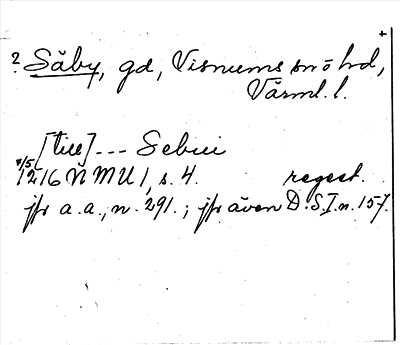 +
? Säby, gd, Visnums sn o hd,
Värml. l.
[till] --- Sebui
1216 N MU 1, s. 4. regest.
jfr a.a., n. 291.; jfr även D.S.I. n. 157.